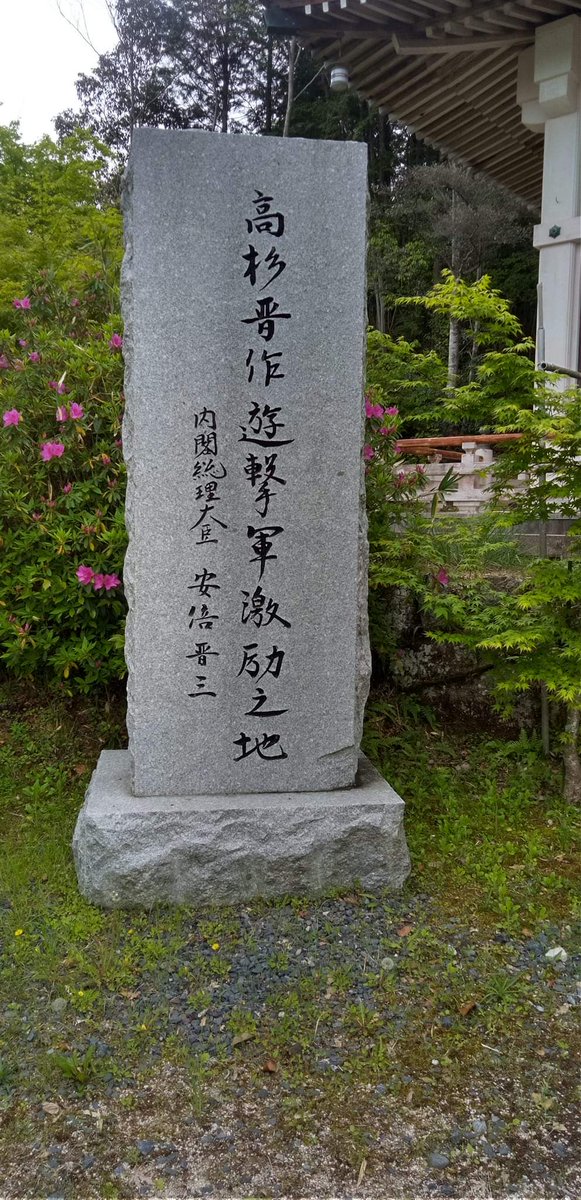 高杉晋作遊撃軍激励之地
内閣総理大臣 安倍晋三